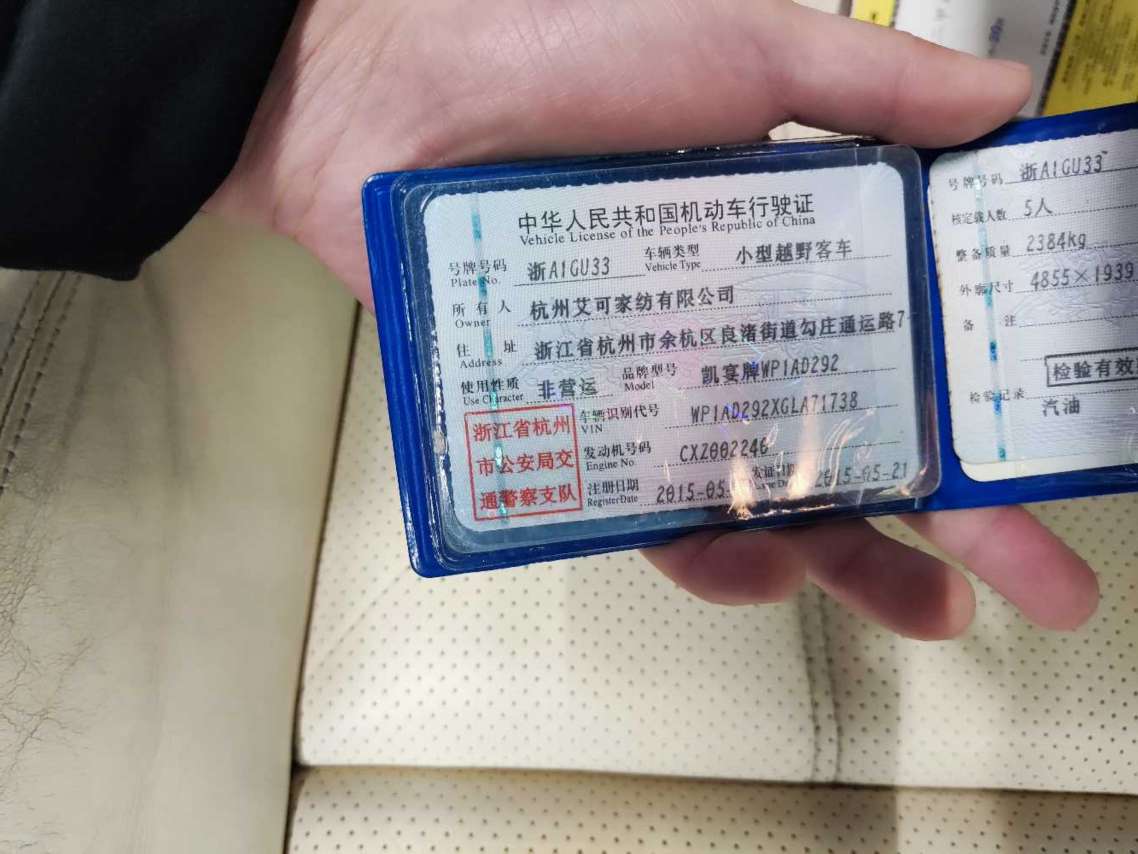 中华人民共和国机动车行驶证
Vehicle License of the People's Republic of China
号牌号码 浙A1GU33 车辆类型 小型越野客车
Plate No. Vehicle Type
所有人 杭州艾可家纺有限公司
Owner
住址 浙江省杭州市余杭区良渚街道勾庄通运路7
Address
使用性质 非营运 品牌型号 凯宴牌WP1AD292
Use Character Model
浙江省杭州
市公安局交
通警察支队
车辆识别代号 WP1AD292XGLA71738
VIN
发动机号码 CXZ002246
Engine No.
注册日期 2015-05- 发证日期 2015-05-21
Register Date
号牌号码 浙A1GU33
核定载人数 5人
整备质量 2384kg
外廓尺寸 4855×1939
备注
检验有效
检验记录
汽油